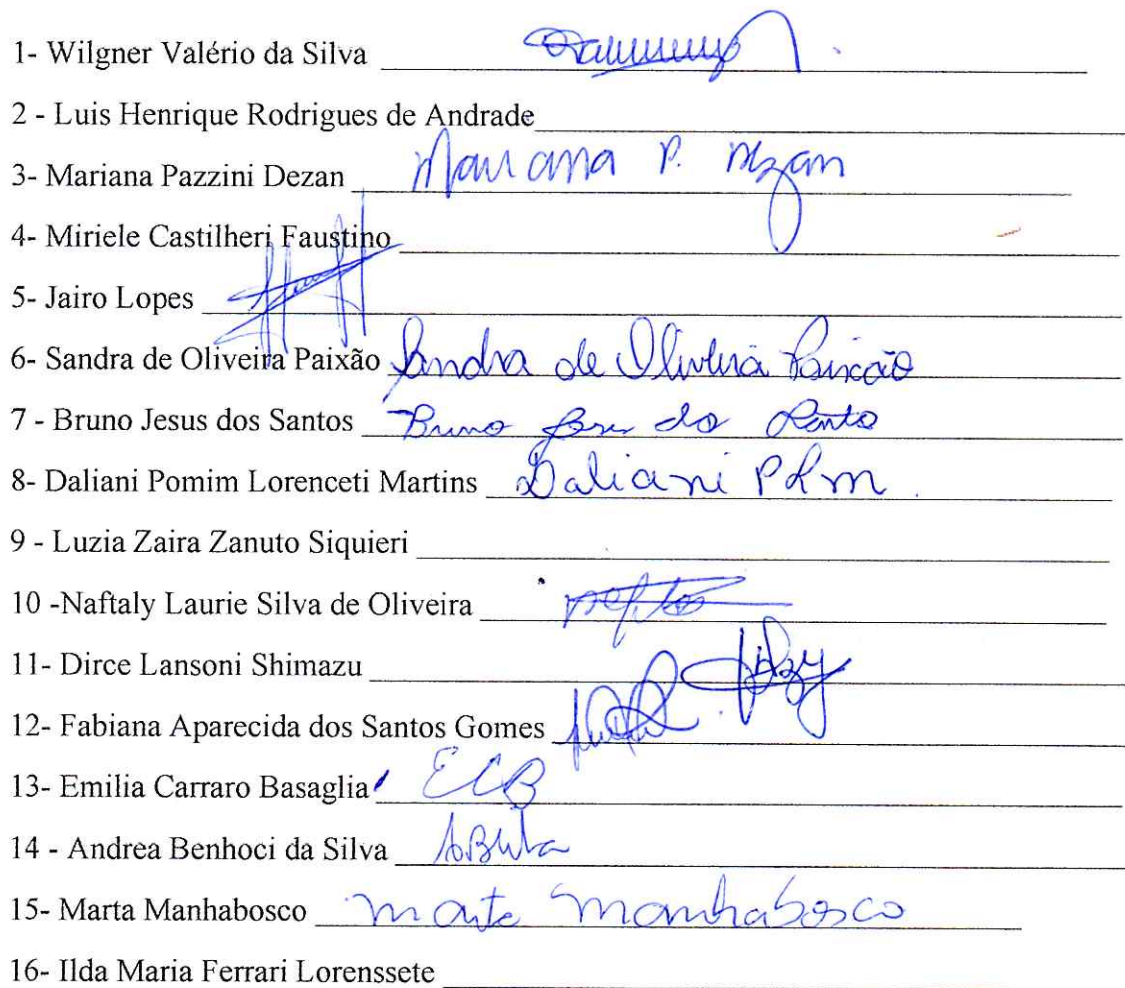 1- Wilgner Valério da Silva
2 - Luis Henrique Rodrigues de Andrade
3- Mariana Pazzini Dezan Mariana P. Dezan
4- Miriele Castilheri Faustino
5- Jairo Lopes
6- Sandra de Oliveira Paixão Sandra de Oliveira Paixão
7 - Bruno Jesus dos Santos Bruno
8- Daliani Pomim Lorenceti Martins Daliani P L m
9 - Luzia Zaira Zanuto Siquieri
10 -Naftaly Laurie Silva de Oliveira
11- Dirce Lansoni Shimazu
12- Fabiana Aparecida dos Santos Gomes
13- Emilia Carraro Basaglia ECB
14 - Andrea Benhoci da Silva
15- Marta Manhabosco Marta Manhabosco
16- Ilda Maria Ferrari Lorenssete